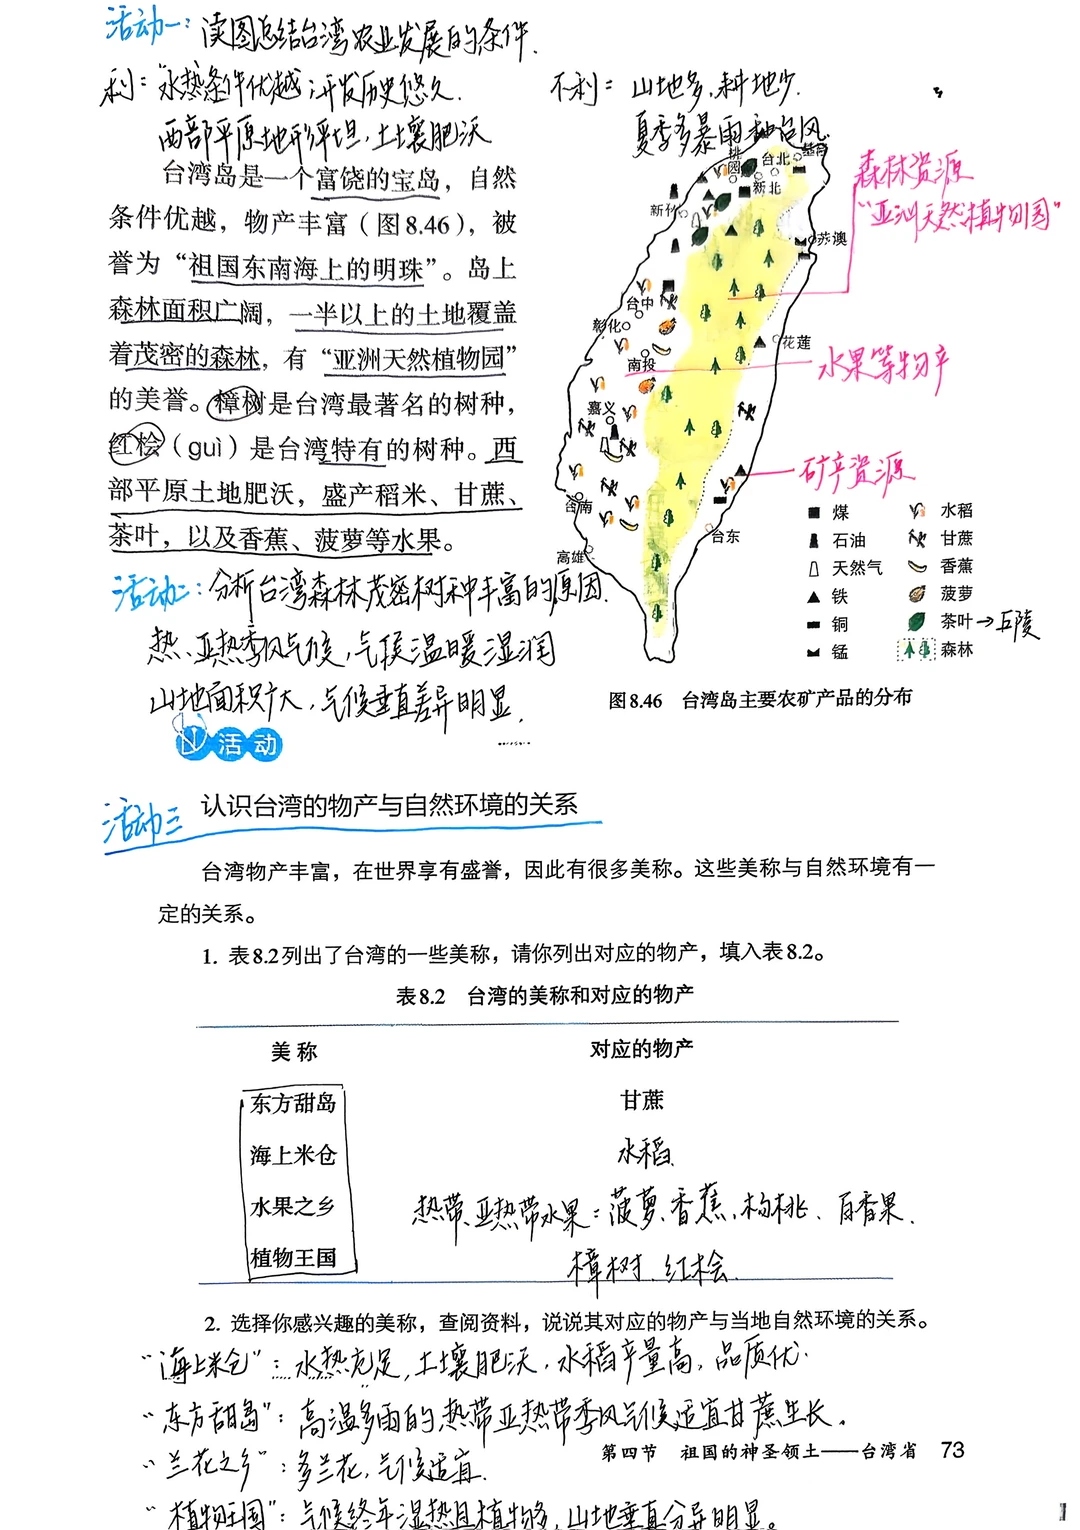 活动一：读图总结台湾农业发展的条件.
利：水热条件优越 开发历史悠久.
西部平原地形平坦，土壤肥沃
不利：山地多，耕地少.
夏季多暴雨和台风.
台湾岛是一个富饶的宝岛，自然
条件优越，物产丰富（图8.46），被
誉为“祖国东南海上的明珠”。岛上
森林面积广阔，一半以上的土地覆盖
着茂密的森林，有“亚洲天然植物园”
的美誉。樟树是台湾最著名的树种，
红桧（guì）是台湾特有的树种。西
部平原土地肥沃，盛产稻米、甘蔗、
茶叶，以及香蕉、菠萝等水果。
活动二：分析台湾森林茂密树种丰富的原因.
热、亚热季风气候，气候温暖湿润
山地面积广大，气候垂直差异明显.
基隆
台北
桃园
新北
新竹
苏澳
台中
彰化
花莲
南投
嘉义
台南
台东
高雄
森林资源
“亚洲天然植物园”
水果等物产
矿产资源
煤
石油
天然气
铁
铜
锰
水稻
甘蔗
香蕉
菠萝
茶叶→丘陵
森林
图8.46 台湾岛主要农矿产品的分布
活动
活动三
认识台湾的物产与自然环境的关系
台湾物产丰富，在世界享有盛誉，因此有很多美称。这些美称与自然环境有一
定的关系。
1. 表8.2列出了台湾的一些美称，请你列出对应的物产，填入表8.2。
表8.2 台湾的美称和对应的物产
美称 对应的物产
东方甜岛 甘蔗
海上米仓 水稻
水果之乡 热带、亚热带水果：菠萝、香蕉、杨桃、百香果.
植物王国 樟树、红桧
2. 选择你感兴趣的美称，查阅资料，说说其对应的物产与当地自然环境的关系。
“海上米仓”：水热充足，土壤肥沃，水稻产量高，品质优.
“东方甜岛”：高温多雨的热带亚热带季风气候适宜甘蔗生长。
第四节 祖国的神圣领土——台湾省 73
“兰花之乡”：多兰花，气候适宜.
“植物王国”：气候终年湿热且植物多，山地垂直分异明显。